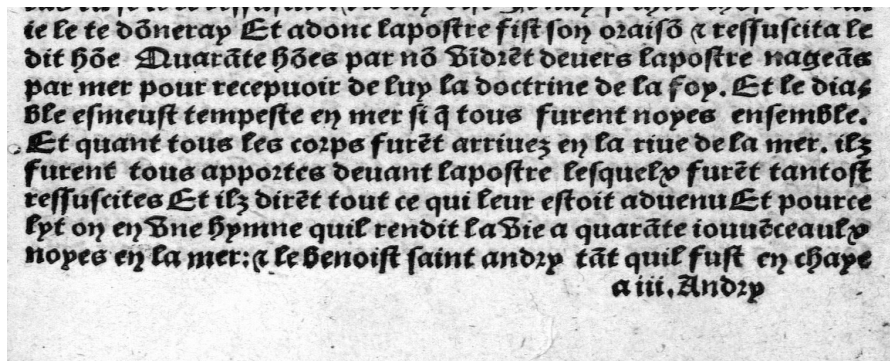 ie le te dōneray Et adonc lapostre fist son oraisō ⁊ ressuscita le
dit hōe Quarāte hōes par nō vīdrēt devers lapostre nageās
par mer pour recepuoir de luy la doctrine de la foy. Et le dia-
ble esmeust tempeste en mer si q̄ tous furent noyes ensemble.
Et quant tous les corps furēt arriuez en la riue de la mer. ilz
furent tous apportes deuant lapostre lesquelx furēt tantost
ressuscites Et ilz dirēt tout ce qui leur estoit aduenu Et pource
lyt on en vne hymne quil rendit la vie a quarāte iouuēceaulx
noyes en la mer: ⁊ le benoist saint andry tāt quil fust en chaye
a iii. Andry